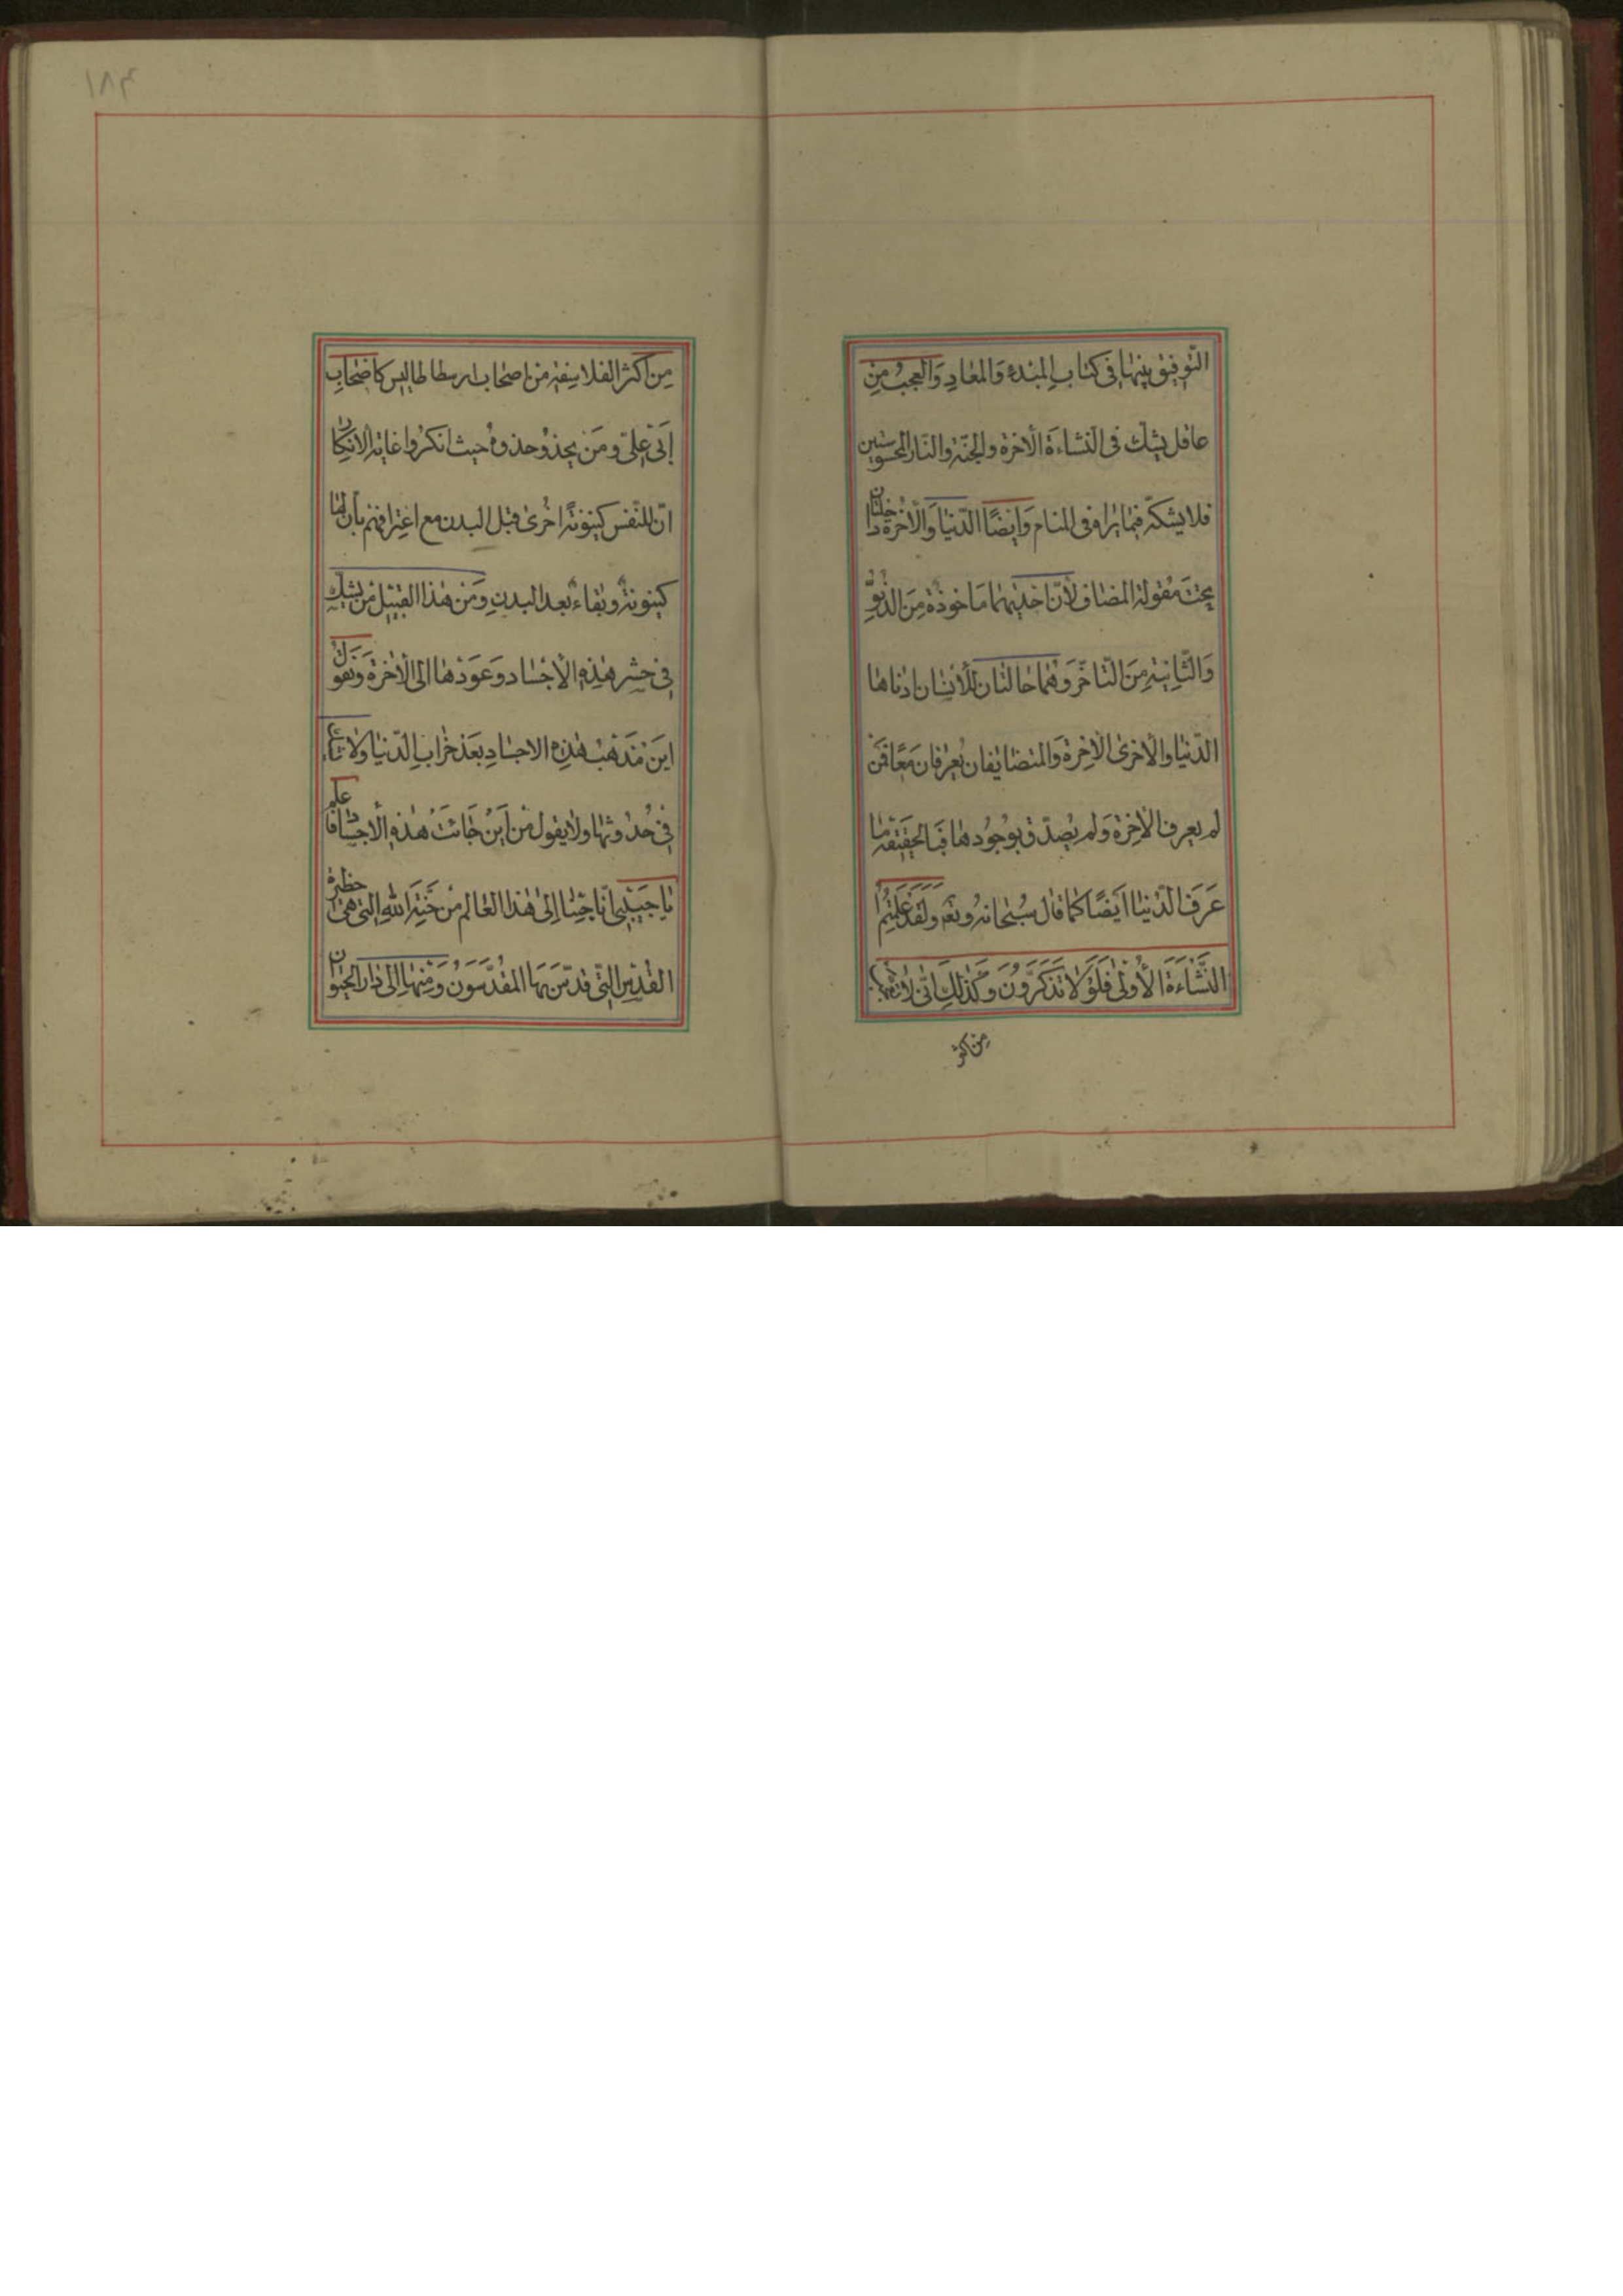 التّوفيق بينها فى كتاب المبدء وَالمعادِ وَالعجبُ مِن
عاقل يشك فى النشاءَة الاخرة والجنّة والنّار المحسوستين
فلا يشكّ فيما يراه فى المنام وَايضًا الدّنيا وَالأخرة داخلتان
تحتَ مقولة المضاف لأنّ احديهما مَاخوذة مِنَ الدّنوِّ
وَالثّانية مِنَ التّاخّر وَهُما حالتان للأنسان ادناها
الدّنيا والأخرىٰ الاخِرة وَالمتضايفان يُعرفان مَعًا فمَن
لم يعرف الأخِرة وَلم يصدّق بوجُودها فبالحقيقة ما
عَرَفَ الدّنيا ايضًا كما قال سُبحانه وتعٰ وَلَقَدْ عَلِمْتُمُ
النَّشْاءَةَ الأُولىٰ فَلَوْلا تَذَكَّرُونَ وَكذلك انّى لأتعجّب
مِن اكثر
مِن اكثر الفلاسِفة من اصحاب ارسطاطاليس كاصحاب
أبى علىّ وَمَن يحذو حذوهُ حيث انكروا غاية الانكار
انّ للنّفس كينونةً اخرىٰ قبل البدن مع اعترافهم بأن لها
كينونةٌ وبقاءٌ بعد البدنِ وَمن هٰذا القبيل من يشكّ
فى حشر هٰذِه الأجساد وَعَودها الى الأخرة وَيقول
اينَ مَذهبُ هٰذِه الاجساد بعَد خراب الدّنيا ولا
فى حُدوثها ولا يقول من اَينَ جَائت هٰذه الأجساد فاعلم
يا حَبيبى انّا جئنا إلىٰ هٰذا العالم من جَنّة اللّٰه الّتى هىَ حظيرة
القُدس الّتى قدّسَ بها المقدّسُونَ وَمِنها الى دار الحيوان